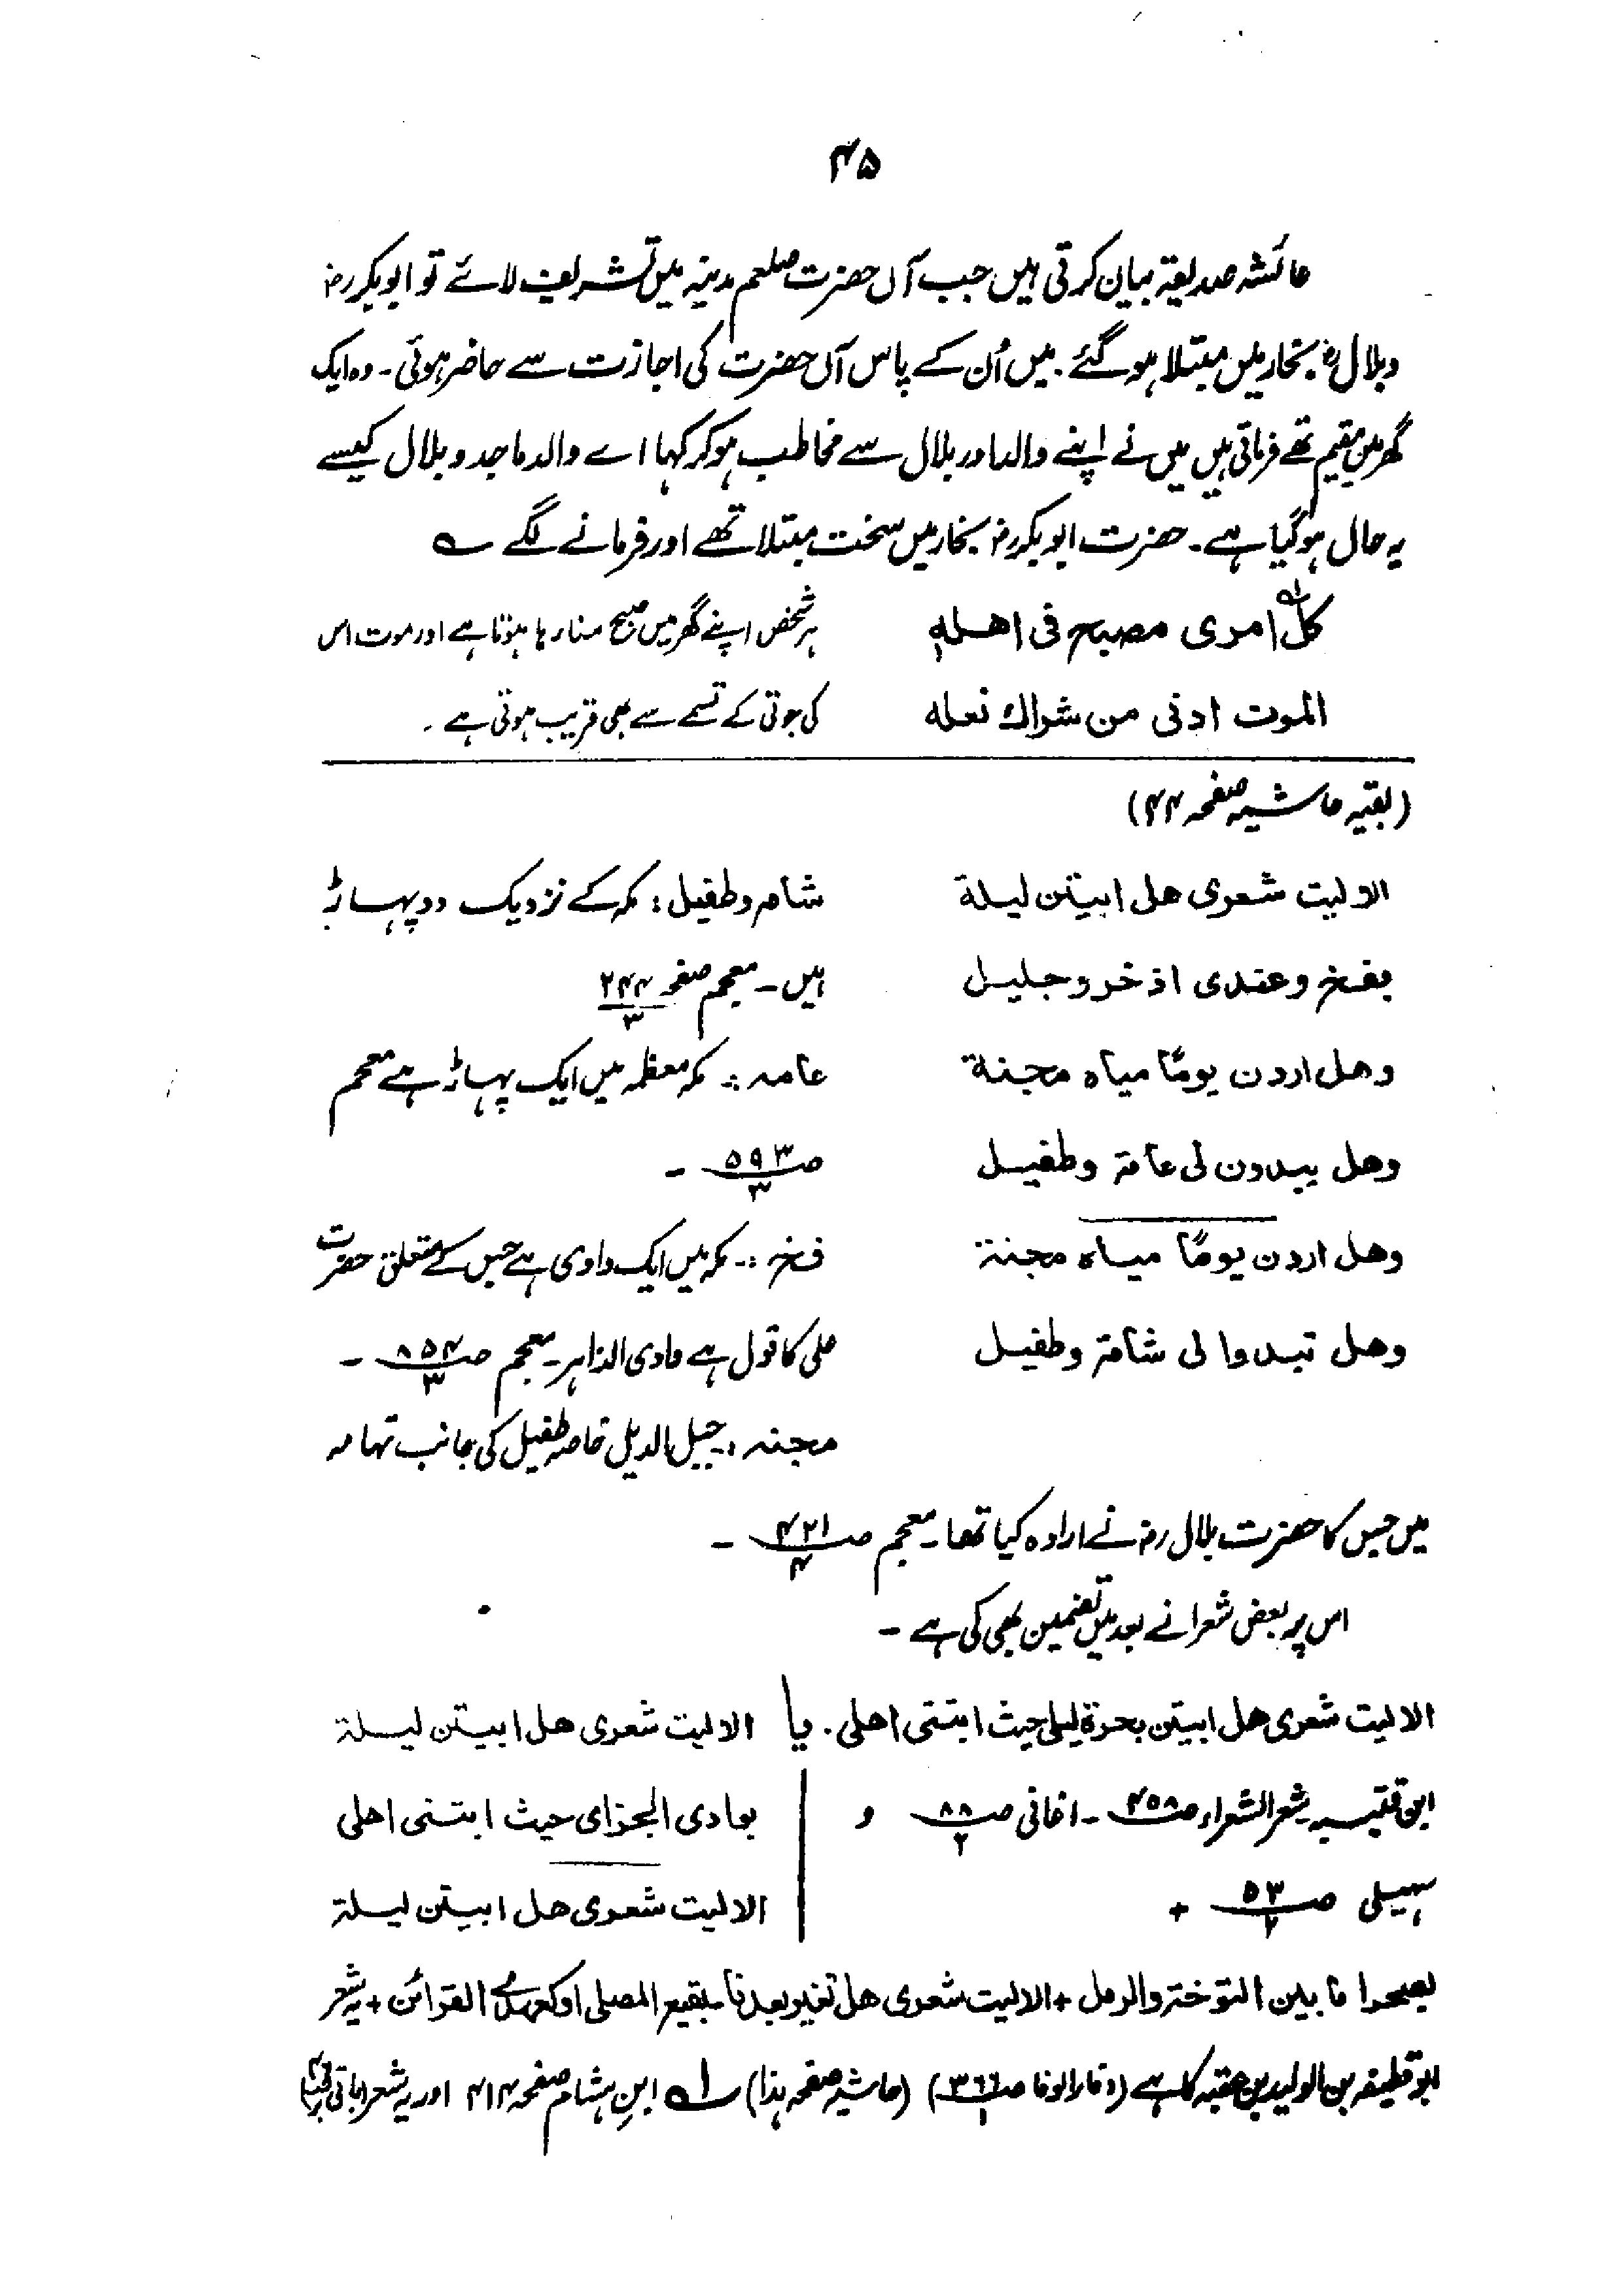 ۴۵
عائشہ صدیقہ بیان کرتی ہیں جب آں حضرت صلعم مدینہ میں تشریف لائے تو ابوبکر رض
و بلال رض بخار میں مبتلا ہو گئے۔ میں اُن کے پاس آں حضرت کی اجازت سے حاضر ہوئی۔ وہ ایک
گھر میں مقیم تھے فرماتی ہیں میں نے اپنے والد اور بلال سے مخاطب ہو کر کہا اے والد ماجد و بلال کیسے
یہ حال ہو گیا ہے۔ حضرت ابوبکر رض بخار میں سخت مبتلا تھے اور فرمانے لگے ؎
کل امری مصبح فی اهله ہر شخص اپنے گھر میں صبح منا رہا ہوتا ہے اور موت اس
الموت ادنی من شراك نعله کی جوتی کے تسمے سے بھی قریب ہوتی ہے۔
(بقیہ حاشیہ صفحہ ۴۴)
الا لیت شعری هل ابیتن لیلة شامہ و طفیل : مکہ کے نزدیک دو پہاڑ
بفخ وعندی اذخر وجلیل ہیں۔ معجم صفحہ ۲۴۴/۳
وهل اردن یومًا میاه مجنة عامہ :۔ مکہ معظمہ میں ایک پہاڑ ہے معجم
وهل یبدون لی عامة وطفیل صـ ۵۹۳/۳ ۔
وهل اردن یومًا میاه مجنة فخ :۔ مکہ میں ایک وادی ہے جس کے متعلق حضرت
وهل تبدوا لی شامة وطفیل علی کا قول ہے وادی الزاہر۔ معجم صـ ۸۵۴/۳ ۔
مجنہ :۔ جبل الدیل خاصہ طفیل کی جانب تہامہ
میں جس کا حضرت بلال رض نے ارادہ کیا تھا۔ معجم صـ ۴۲۱/۴ ۔
اس پر بعض شعرا نے بعد میں تضمین بھی کی ہے ۔
الا لیت شعری هل ابیتن بحرة لیلی حیث ابتنی اهلی . یا الا لیت شعری هل ابیتن لیلة
ابن قتیبہ شعر الشعراء صـ ۴۵۸ ۔ اغانی صـ ۸۸/۲ و بوادی الجزای حیث ابتنی اهلی
سہیلی صـ ۵۳/۲ + الا لیت شعری هل ابیتن لیلة
بصحرا ما بین التوختر والرمل + الا لیت شعری هل تغیر بعدنا ۔ بقیع المصلی او کعهدی القرائن + یہ شعر
ابو قطیفہ بن الولید بن عقبہ کا ہے (وفاء الوفا صـ ۳۶۶/۱) (حاشیہ صفحہ ہذا) ؎۱ ابن ہشام صفحہ ۴۱۴ اور یہ شعر (باقی